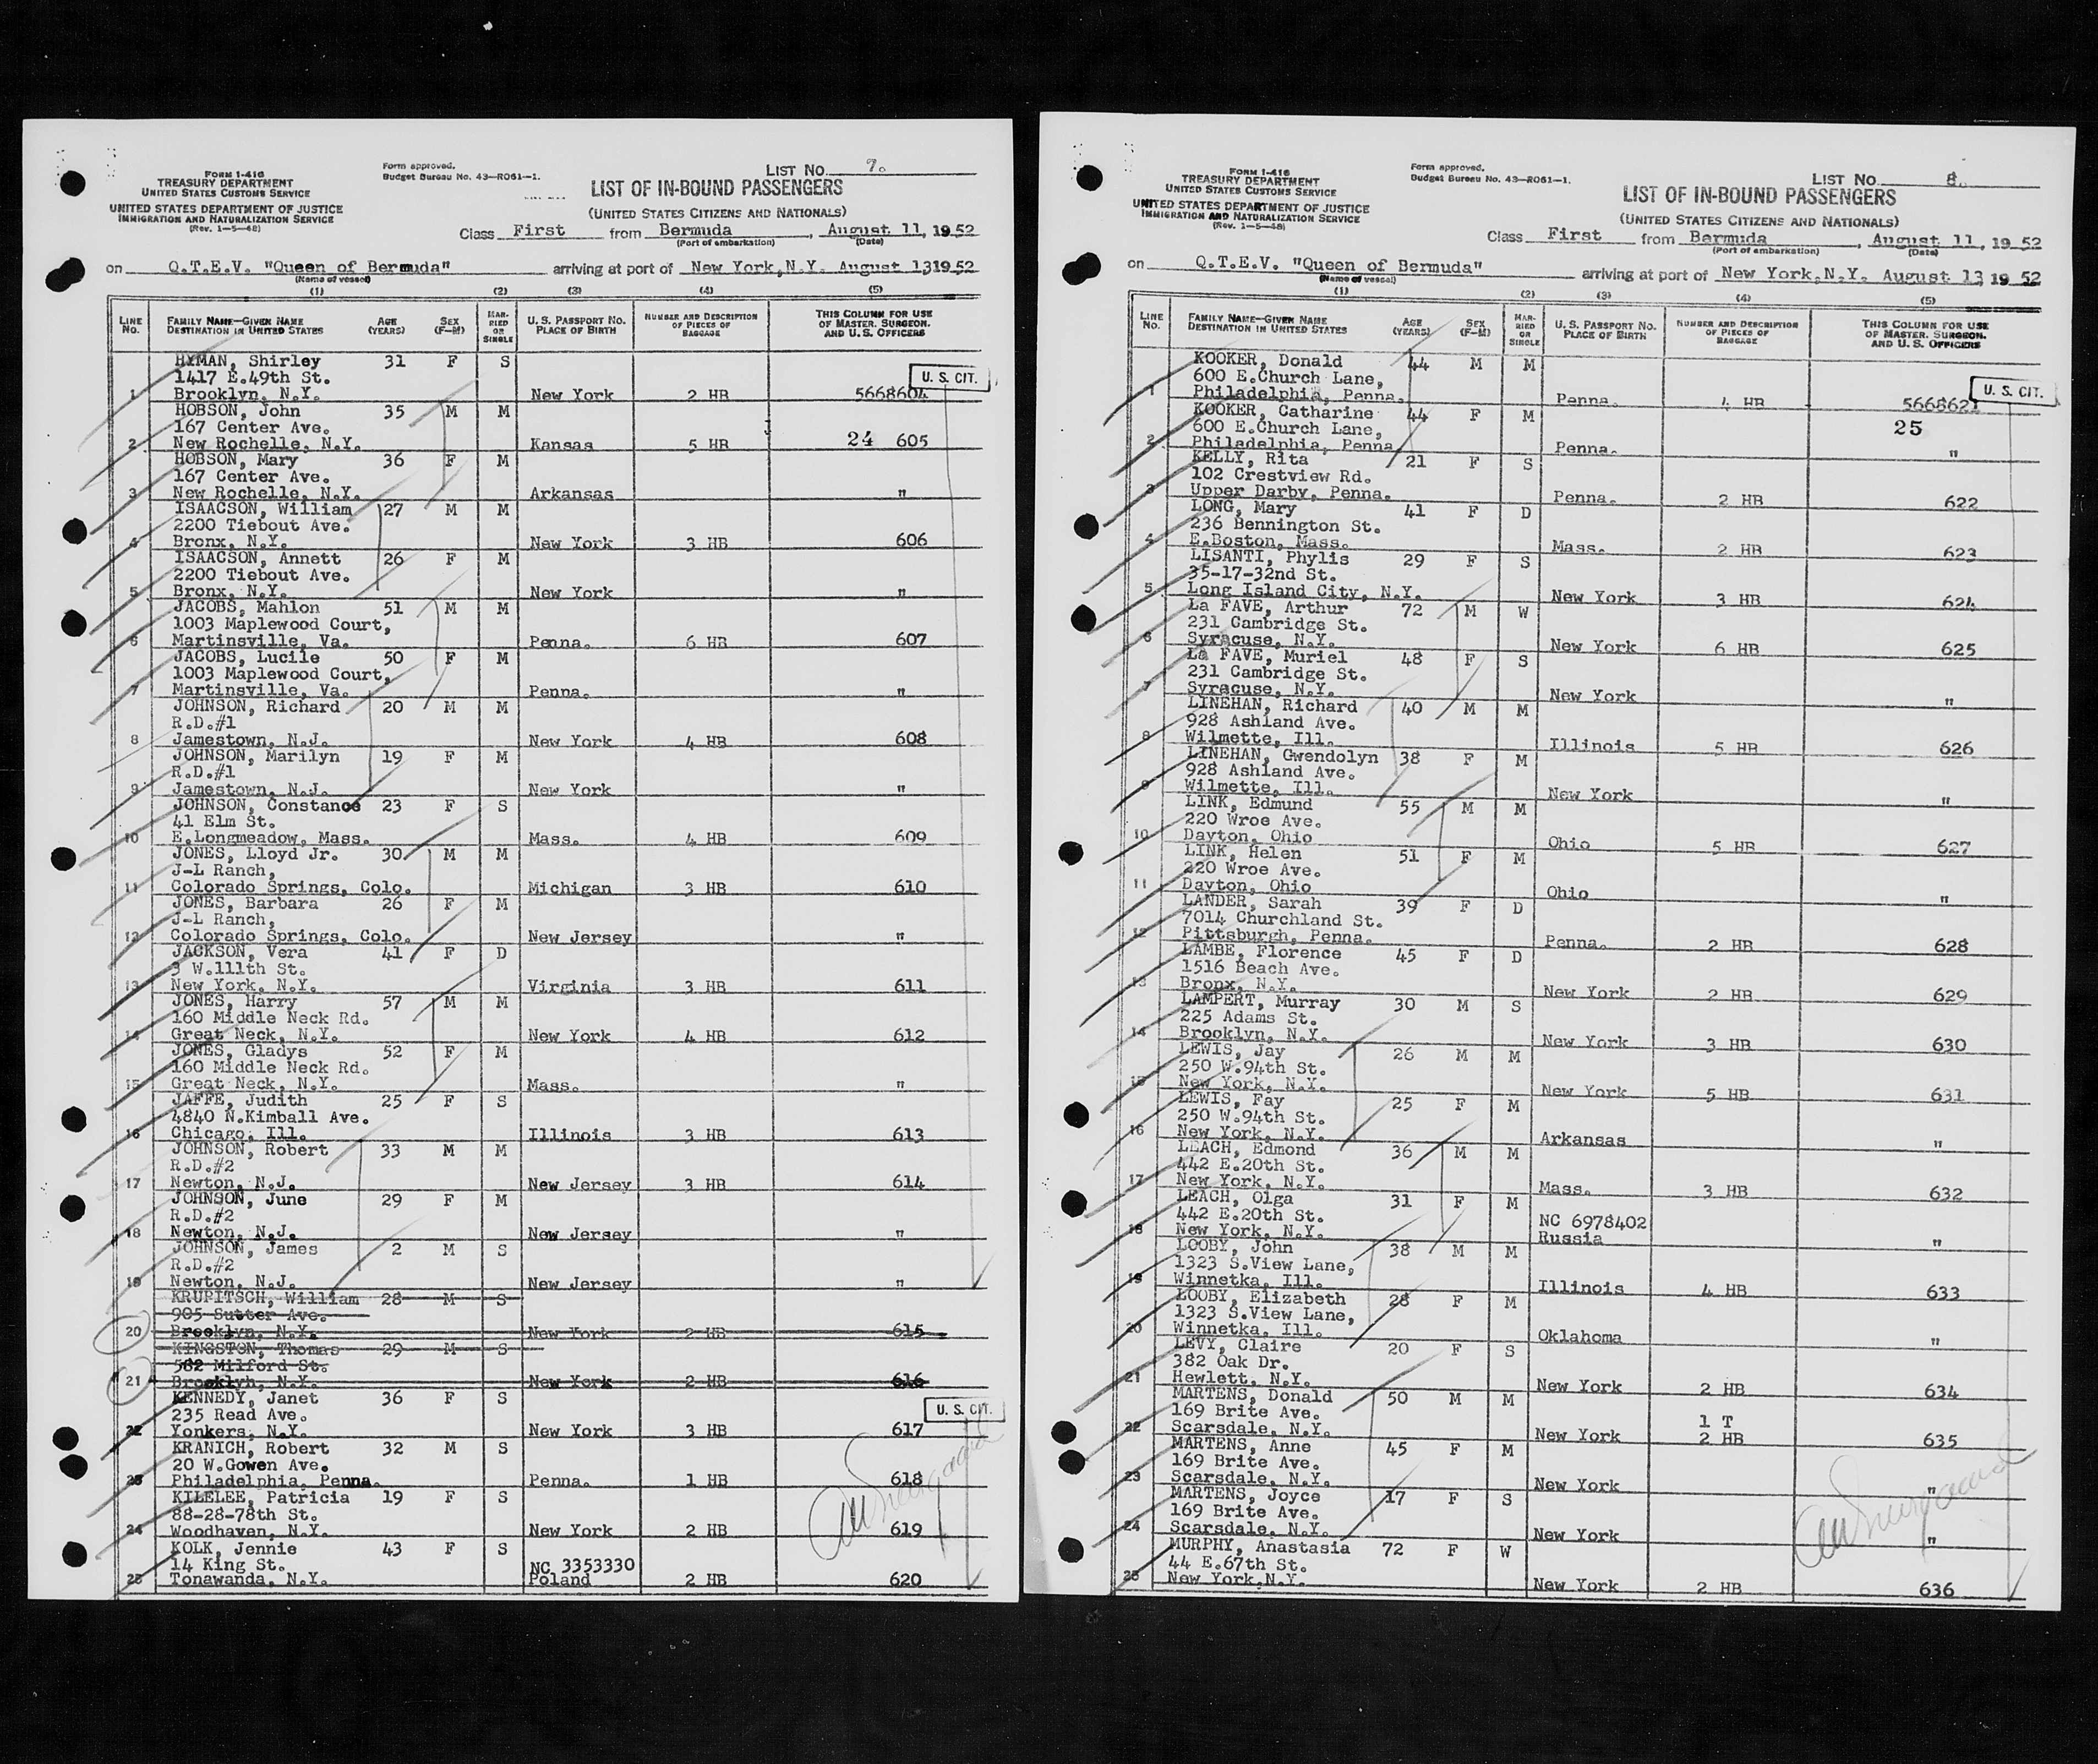 FORM I-416
TREASURY DEPARTMENT
UNITED STATES CUSTOMS SERVICE
UNITED STATES DEPARTMENT OF JUSTICE
IMMIGRATION AND NATURALIZATION SERVICE
(Rev. 1-5-48)
Form approved.
Budget Bureau No. 43-R061-1.
LIST NO. 7.
LIST OF IN-BOUND PASSENGERS
(UNITED STATES CITIZENS AND NATIONALS)
Class First from Bermuda, August 11, 1952
(Port of embarkation) (Date)
on Q.T.E.V. "Queen of Bermuda" arriving at port of New York,N.Y. August 13 1952
(Name of vessel)
(1) (2) (3) (4) (5)
LINE No. FAMILY NAME—GIVEN NAME DESTINATION IN UNITED STATES AGE (YEARS) SEX (F-M) MARRIED OR SINGLE U. S. PASSPORT NO. PLACE OF BIRTH NUMBER AND DESCRIPTION OF PIECES OF BAGGAGE THIS COLUMN FOR USE OF MASTER, SURGEON, AND U. S. OFFICERS
HYMAN, Shirley 31 F S
1417 E.49th St. U. S. CIT.
1 Brooklyn, N.Y. New York 2 HB 5668604
HOBSON, John 35 M M
167 Center Ave.
2 New Rochelle, N.Y. Kansas 5 HB 24 605
HOBSON, Mary 36 F M
167 Center Ave.
3 New Rochelle, N.Y. Arkansas "
ISAACSON, William 27 M M
2200 Tiebout Ave.
4 Bronx, N.Y. New York 3 HB 606
ISAACSON, Annett 26 F M
2200 Tiebout Ave.
5 Bronx, N.Y. New York "
JACOBS, Mahlon 51 M M
1003 Maplewood Court,
6 Martinsville, Va. Penna. 6 HB 607
JACOBS, Lucile 50 F M
1003 Maplewood Court,
7 Martinsville, Va. Penna. "
JOHNSON, Richard 20 M M
R.D.#1
8 Jamestown, N.J. New York 4 HB 608
JOHNSON, Marilyn 19 F M
R.D.#1
9 Jamestown, N.J. New York "
JOHNSON, Constance 23 F S
41 Elm St.
10 E.Longmeadow, Mass. Mass. 4 HB 609
JONES, Lloyd Jr. 30 M M
J-L Ranch,
11 Colorado Springs, Colo. Michigan 3 HB 610
JONES, Barbara 26 F M
J-L Ranch,
12 Colorado Springs, Colo. New Jersey "
JACKSON, Vera 41 F D
3 W.111th St.
13 New York, N.Y. Virginia 3 HB 611
JONES, Harry 57 M M
160 Middle Neck Rd.
14 Great Neck, N.Y. New York 4 HB 612
JONES, Gladys 52 F M
160 Middle Neck Rd.
15 Great Neck, N.Y. Mass. "
JAFFE, Judith 25 F S
4840 N.Kimball Ave.
16 Chicago, Ill. Illinois 3 HB 613
JOHNSON, Robert 33 M M
R.D.#2
17 Newton, N.J. New Jersey 3 HB 614
JOHNSON, June 29 F M
R.D.#2
18 Newton, N.J. New Jersey "
JOHNSON, James 2 M S
R.D.#2
19 Newton, N.J. New Jersey "
KRUPITSCH, William 28 M S
905 Sutter Ave.
20 Brooklyn, N.Y. New York 2 HB 615
KINGSTON, Thomas 29 M S
582 Milford St.
21 Brooklyn, N.Y. New York 2 HB 616
KENNEDY, Janet 36 F S
235 Read Ave. U. S. CIT.
22 Yonkers, N.Y. New York 3 HB 617
KRANICH, Robert 32 M S
20 W.Gowen Ave.
23 Philadelphia, Penna. Penna. 1 HB 618
KILELEE, Patricia 19 F S
88-28-78th St.
24 Woodhaven, N.Y. New York 2 HB 619
KOLK, Jennie 43 F S
14 King St. NC 3353330
25 Tonawanda, N.Y. Poland 2 HB 620
FORM I-416
TREASURY DEPARTMENT
UNITED STATES CUSTOMS SERVICE
UNITED STATES DEPARTMENT OF JUSTICE
IMMIGRATION AND NATURALIZATION SERVICE
(Rev. 1-5-48)
Form approved.
Budget Bureau No. 43-R061-1.
LIST NO. 8.
LIST OF IN-BOUND PASSENGERS
(UNITED STATES CITIZENS AND NATIONALS)
Class First from Bermuda, August 11, 1952
(Port of embarkation) (Date)
on Q.T.E.V. "Queen of Bermuda" arriving at port of New York,N.Y. August 13 1952
(Name of vessel)
(1) (2) (3) (4) (5)
LINE No. FAMILY NAME—GIVEN NAME DESTINATION IN UNITED STATES AGE (YEARS) SEX (F-M) MARRIED OR SINGLE U. S. PASSPORT NO. PLACE OF BIRTH NUMBER AND DESCRIPTION OF PIECES OF BAGGAGE THIS COLUMN FOR USE OF MASTER, SURGEON, AND U. S. OFFICERS
KOOKER, Donald 44 M M
600 E.Church Lane, U. S. CIT.
1 Philadelphia, Penna. Penna. 4 HB 5668621
KOOKER, Catharine 44 F M 25
600 E.Church Lane,
2 Philadelphia, Penna Penna. "
KELLY, Rita 21 F S
102 Crestview Rd.
3 Upper Darby, Penna. Penna. 2 HB 622
LONG, Mary 41 F D
236 Bennington St.
4 E.Boston, Mass. Mass. 2 HB 623
LISANTI, Phylis 29 F S
35-17-32nd St.
5 Long Island City, N.Y. New York 3 HB 624
La FAVE, Arthur 72 M W
231 Cambridge St.
6 Syracuse, N.Y. New York 6 HB 625
La FAVE, Muriel 48 F S
231 Cambridge St.
7 Syracuse, N.Y. New York "
LINEHAN, Richard 40 M M
928 Ashland Ave.
8 Wilmette, Ill. Illinois 5 HB 626
LINEHAN, Gwendolyn 38 F M
928 Ashland Ave.
9 Wilmette, Ill. New York "
LINK, Edmund 55 M M
220 Wroe Ave.
10 Dayton, Ohio Ohio 5 HB 627
LINK, Helen 51 F M
220 Wroe Ave.
11 Dayton, Ohio Ohio "
LANDER, Sarah 39 F D
7014 Churchland St.
12 Pittsburgh, Penna. Penna. 2 HB 628
LAMBE, Florence 45 F D
1516 Beach Ave.
13 Bronx, N.Y. New York 2 HB 629
LAMPERT, Murray 30 M S
225 Adams St.
14 Brooklyn, N.Y. New York 3 HB 630
LEWIS, Jay 26 M M
250 W.94th St.
15 New York, N.Y. New York 5 HB 631
LEWIS, Fay 25 F M
250 W.94th St.
16 New York, N.Y. Arkansas "
LEACH, Edmond 36 M M
442 E.20th St.
17 New York, N.Y. Mass. 3 HB 632
LEACH, Olga 31 F M
442 E.20th St. NC 6978402
18 New York, N.Y. Russia "
LOOBY, John 38 M M
1323 S.View Lane,
19 Winnetka, Ill. Illinois 4 HB 633
LOOBY, Elizabeth 28 F M
1323 S.View Lane,
20 Winnetka, Ill. Oklahoma "
LEVY, Claire 20 F S
382 Oak Dr.
21 Hewlett, N.Y. New York 2 HB 634
MARTENS, Donald 50 M M
169 Brite Ave. 1 T
22 Scarsdale, N.Y. New York 2 HB 635
MARTENS, Anne 45 F M
169 Brite Ave.
23 Scarsdale, N.Y. New York "
MARTENS, Joyce 17 F S
169 Brite Ave.
24 Scarsdale, N.Y. New York "
MURPHY, Anastasia 72 F W
44 E.67th St.
25 New York,N.Y. New York 2 HB 636